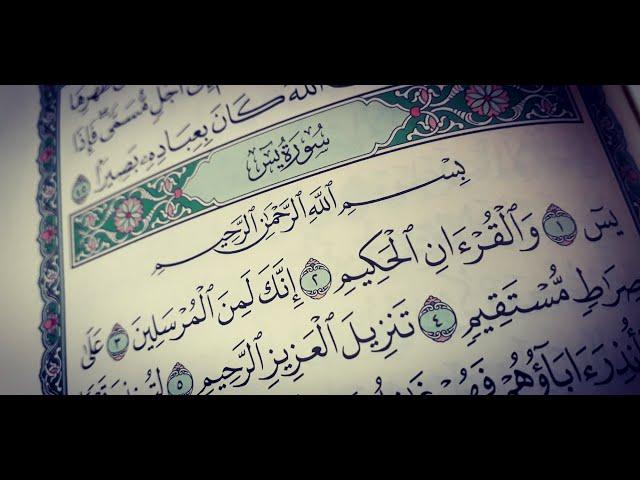 إِلَىٰٓ أَجَلٍ مُّسَمًّى فَإِذَا
ٱللَّهَ كَانَ بِعِبَادِهِۦ بَصِيرًۢا ٤٥
سُورَةُ يسٓ
بِسْمِ ٱللَّهِ ٱلرَّحْمَٰنِ ٱلرَّحِيمِ
يسٓ ١ وَٱلْقُرْءَانِ ٱلْحَكِيمِ ٢ إِنَّكَ لَمِنَ ٱلْمُرْسَلِينَ ٣ عَلَىٰ
صِرَٰطٍ مُّسْتَقِيمٍ ٤ تَنزِيلَ ٱلْعَزِيزِ ٱلرَّحِيمِ ٥ لِتُنذِرَ
أُنذِرَ ءَابَآؤُهُمْ فَهُمْ